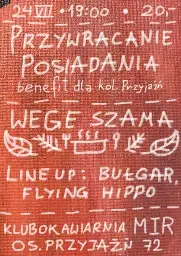 24 VII • 19:00 • 20,-
PRZYWRACANIE
POSIADANIA
benefit dla kol. Przyjaźń
WEGE SZAMA
LINE UP: BUŁGAR,
FLYING HIPPO
KLUBOKAWIARNIA MIR
OS. PRZYJAŹŃ 72